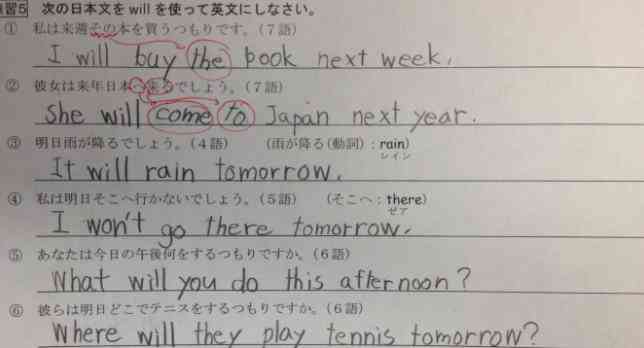 習5 次の日本文を will を使って英文にしなさい。
① 私は来週その本を買うつもりです。(7語)
I will buy the book next week.
② 彼女は来年日本へ来るでしょう。(7語)
She will come to Japan next year.
③ 明日雨が降るでしょう。(4語) (雨が降る(動詞):rain)
レイン
It will rain tomorrow.
④ 私は明日そこへ行かないでしょう。(5語) (そこへ:there)
ゼア
I won't go there tomorrow.
⑤ あなたは今日の午後何をするつもりですか。(6語)
What will you do this afternoon?
⑥ 彼らは明日どこでテニスをするつもりですか。(6語)
Where will they play tennis tomorrow?